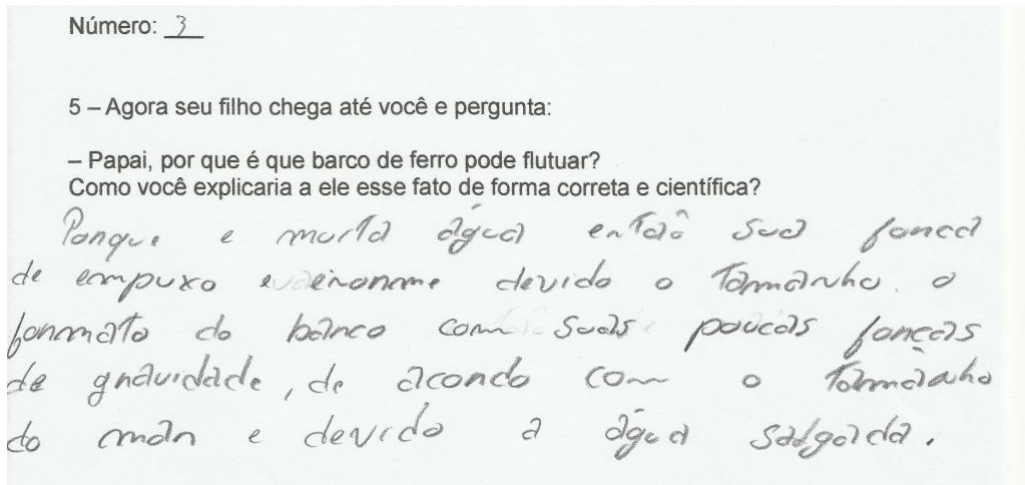 Número: 3
5 – Agora seu filho chega até você e pergunta:
– Papai, por que é que barco de ferro pode flutuar?
Como você explicaria a ele esse fato de forma correta e científica?
Porque e muita água então sua força
de empuxo e enorme devido o tamanho o
formato do barco com suas poucas forças
de gravidade, de acordo com o tamanho
do mar e devido a água salgada.